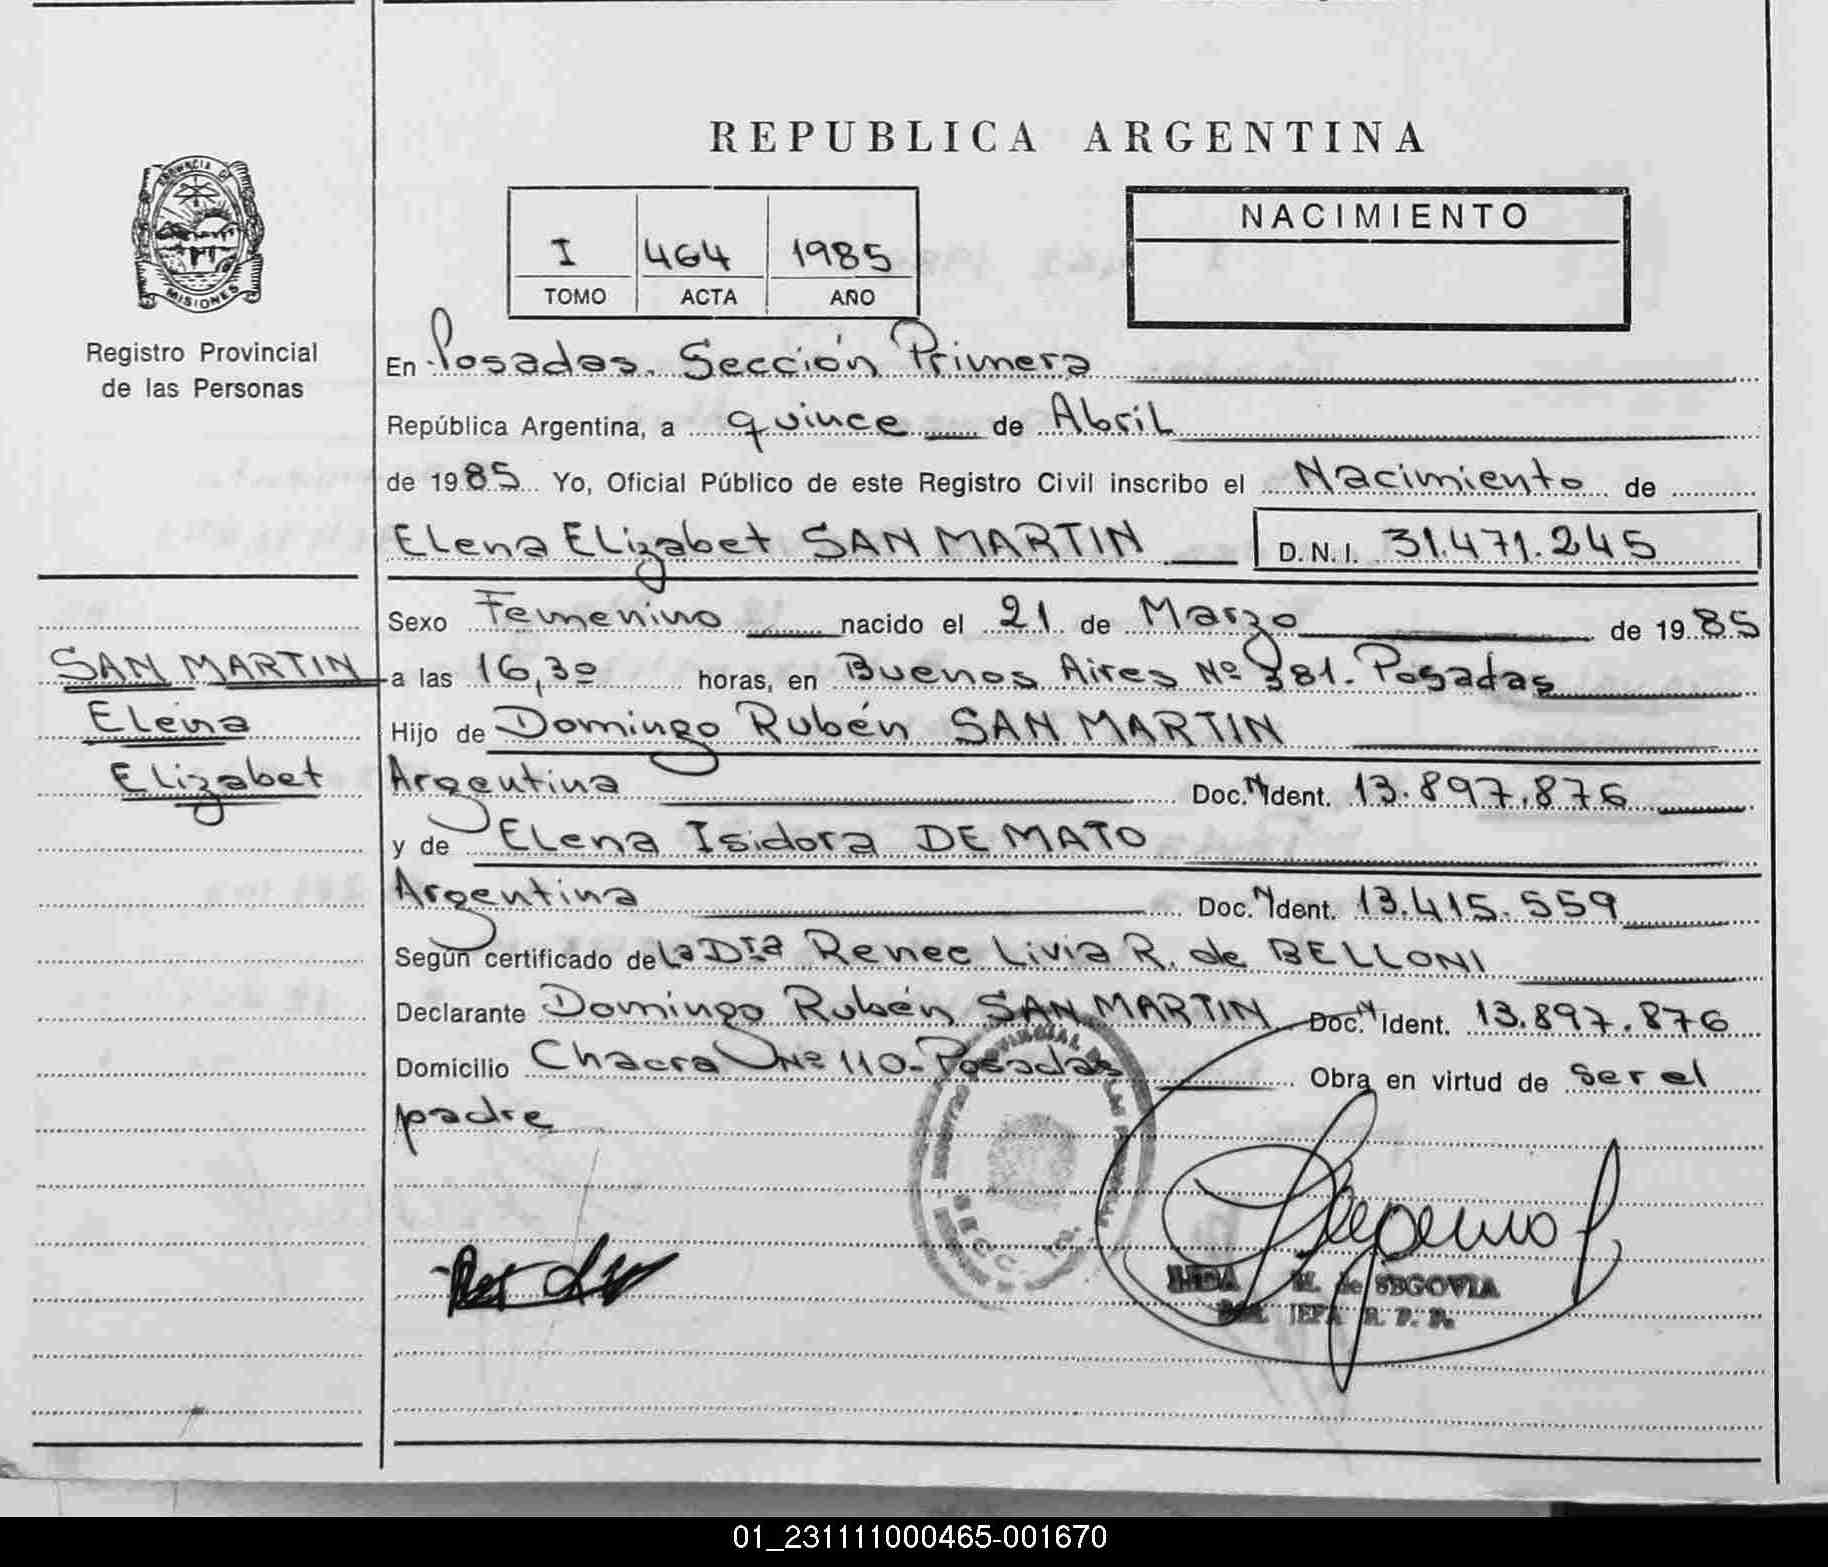 REPUBLICA ARGENTINA
PROVINCIA DE
MISIONES
Registro Provincial
de las Personas
I 464 1985
TOMO ACTA AÑO
NACIMIENTO
En Posadas. Sección Primera
República Argentina, a quince de Abril
de 1985 Yo, Oficial Público de este Registro Civil inscribo el Nacimiento de
Elena Elizabet SAN MARTIN D.N.I. 31.471.245
Sexo Femenino nacido el 21 de Marzo de 1985
SAN MARTIN
Elena
Elizabet
a las 16,30 horas, en Buenos Aires Nº 381. Posadas
Hijo de Domingo Rubén SAN MARTIN
Argentina Doc. N Ident. 13.897.876
y de Elena Isidora DE MATO
Argentina Doc. N Ident. 13.415.559
Según certificado de La Dra Renee Livia R. de BELLONI
Declarante Domingo Rubén SAN MARTIN Doc. N Ident. 13.897.876
Domicilio Chacra Nº 110. Posadas Obra en virtud de ser el
padre
SECC. 1ra.
M. de SEGOVIA
JEFA R. P. P.
01_231111000465-001670